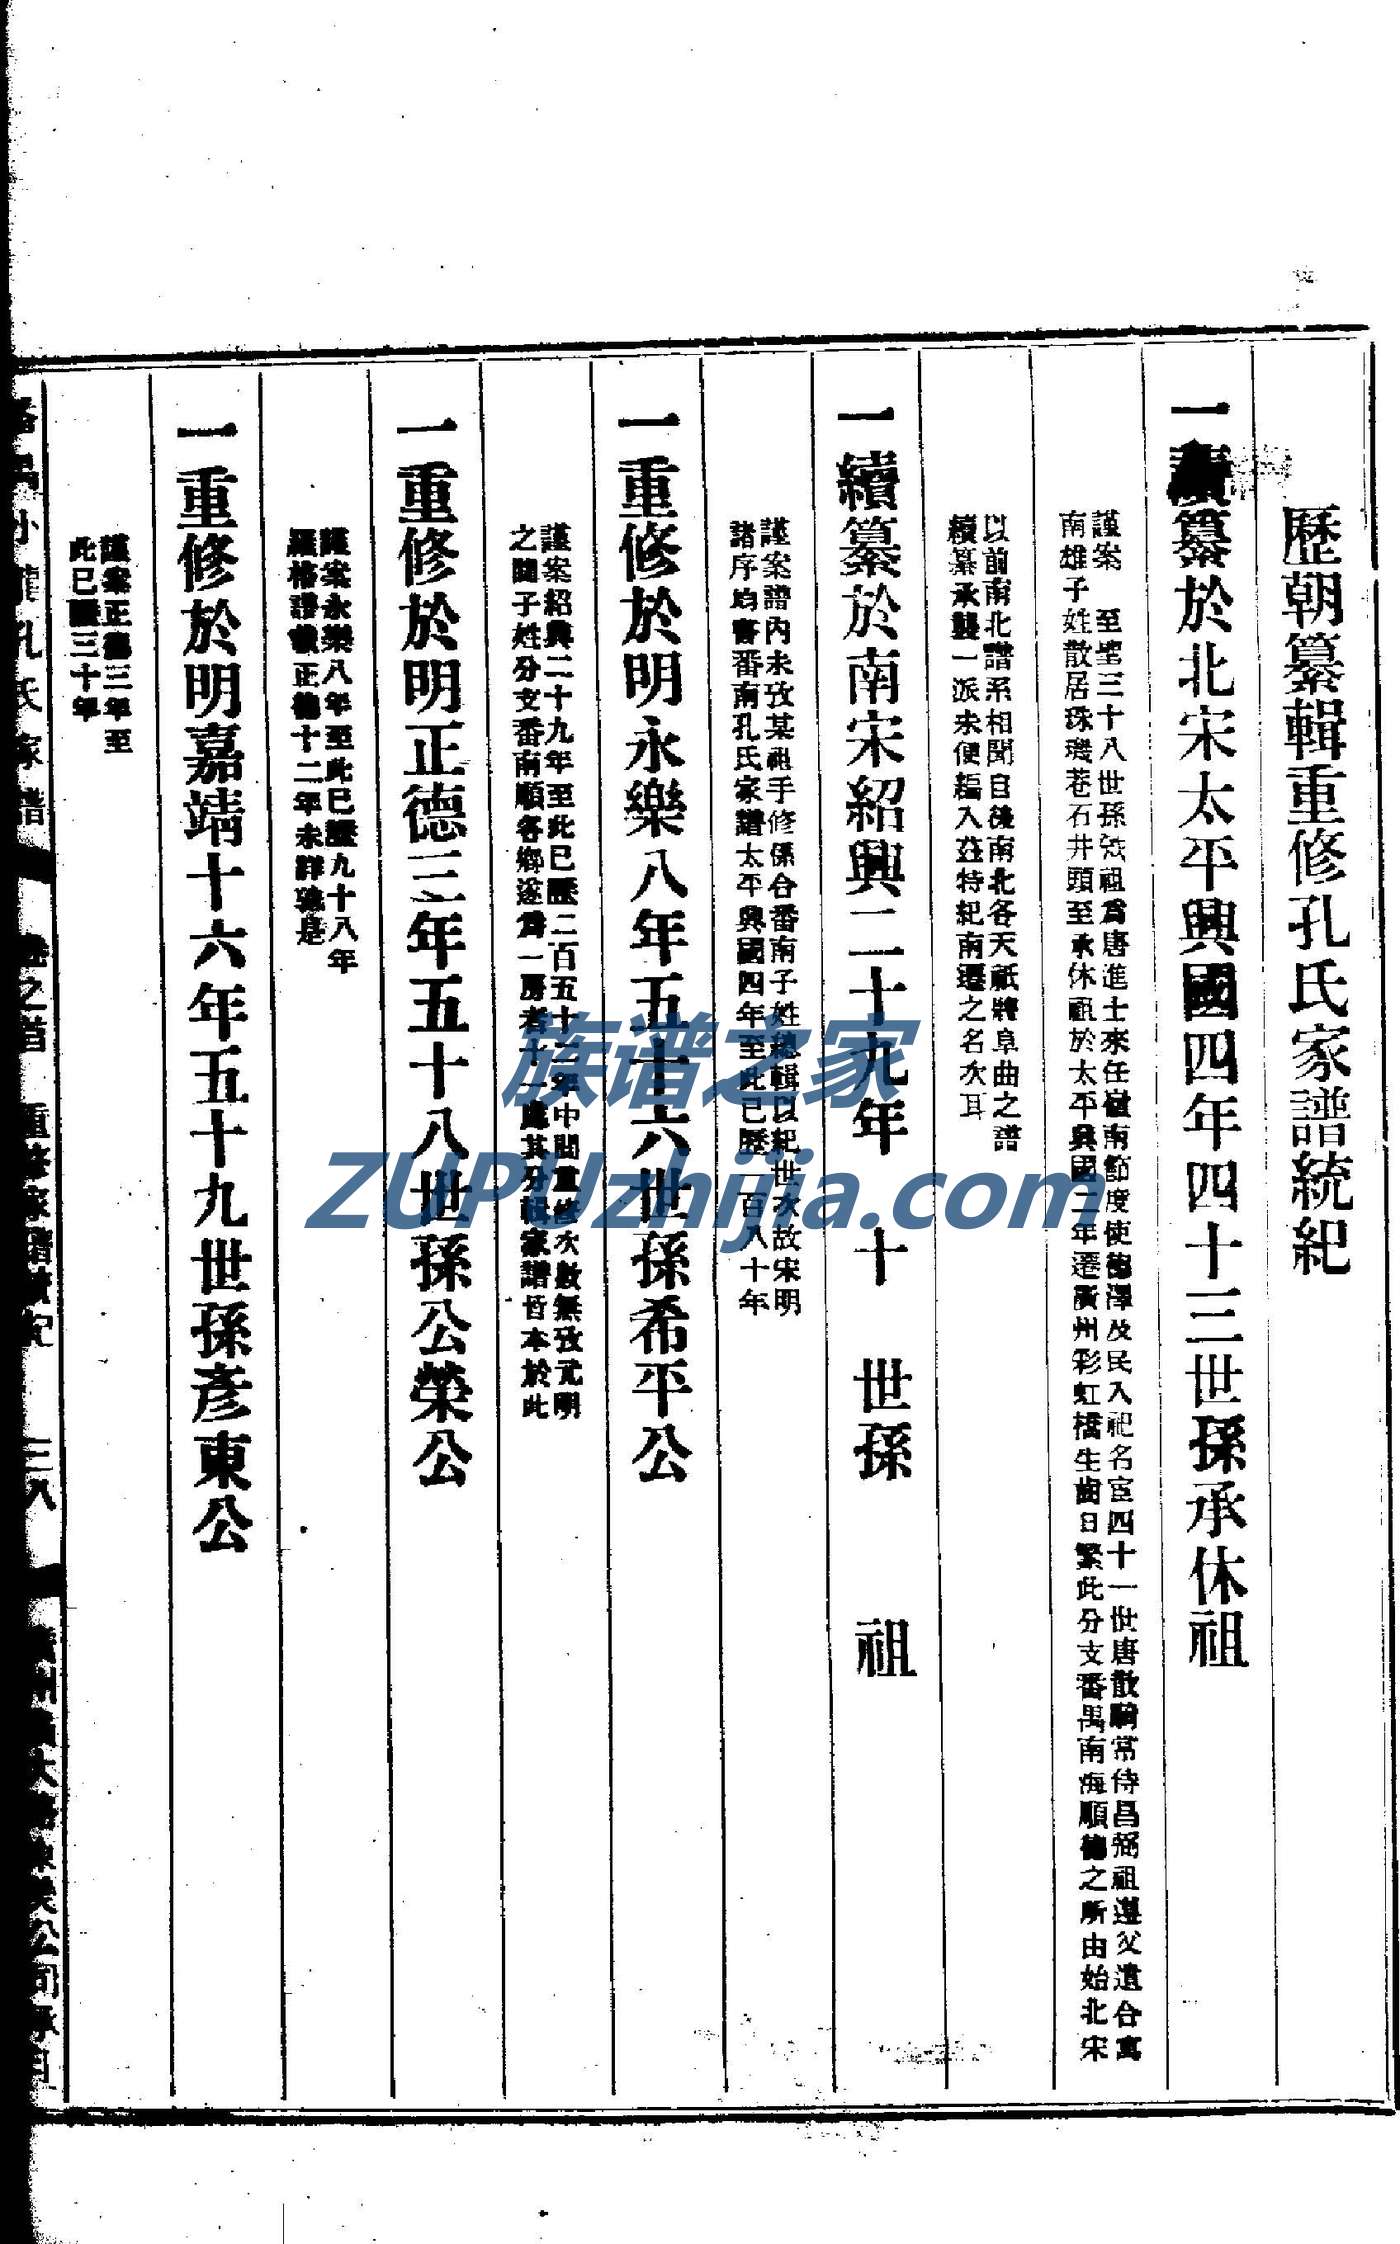 歷朝纂輯重修孔氏家譜統紀
一續纂於北宋太平興國四年四十三世孫承休祖
謹案　至聖三十八世孫祖為唐進士來任嶺南節度使德澤及民入祀名宦四十一世唐散騎常侍昌弼祖遵父遺合寓
南雄子姓散居珠璣巷石井頭至承休祖於太平興國二年遷廣州彩虹橋生齒日繁此分支番禺南海順德之所由始北宋
以前南北譜系相聞自後南北各天祇將阜曲之譜
續纂承襲一派未便編入茲特紀南遷之名次耳
一續纂於南宋紹興二十九年　十　世孫　　祖
謹案譜內未攷某祖手修係合番南子姓總輯以紀世次故宋明
諸序均書番南孔氏家譜太平興國四年至此已歷一百八十年
一重修於明永樂八年五十六世孫希平公
謹案紹興二十九年至此已歷二百五十二年中間重修次數無攷元明
之間子姓分支番南順各鄉遂為一房者一處其分輯家譜皆本於此
一重修於明正德三年五十八世孫公榮公
謹案永樂八年至此已歷九十八年
羅格譜載正德十二年未詳孰是
一重修於明嘉靖十六年五十九世孫彥東公
謹案正德三年至
此已歷三十年
孔氏家譜　卷之首　重修家譜統紀　三八
族谱之家
ZUPUzhijia.com